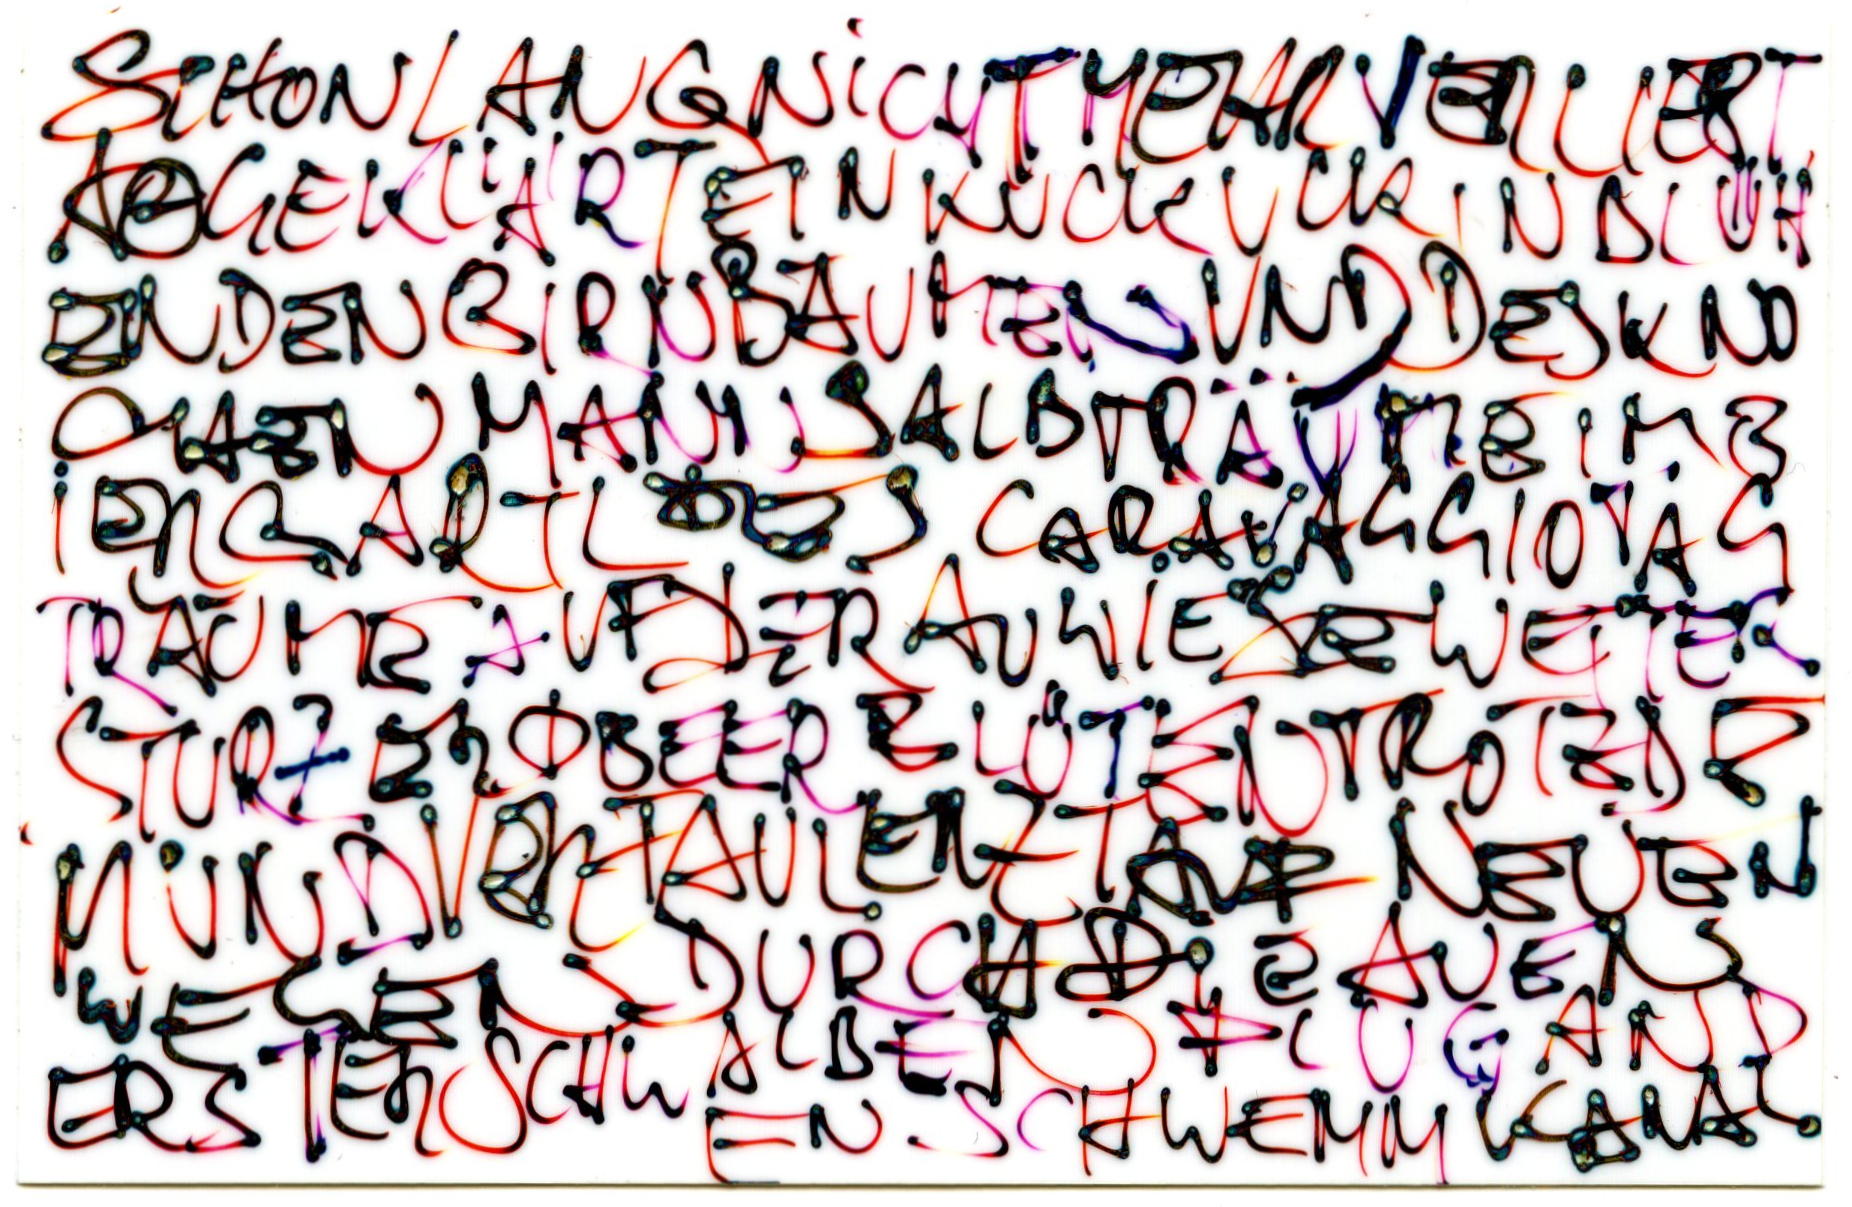 SCHON LANG NICHT MEHR VERLIERT
ABGEKLÄRT EIN KUCKUCK IN BLÜH
ENDEN BIRNBÄUMEN UND DES KNO
CHENMANNS ALBTRÄUME IM B
IERGARTL DES CARAVAGGIO TAG
TRÄUME AUF DER AUWIESE WETTER
STURZ ERDBEERBLÜTEN ROTE
MUND VERFAULENZT AUF NEUEN
WEGEN DURCH DIE AUEN
ERSTER SCHWALBENFLUG AND
EN SCHWEMMKANAL